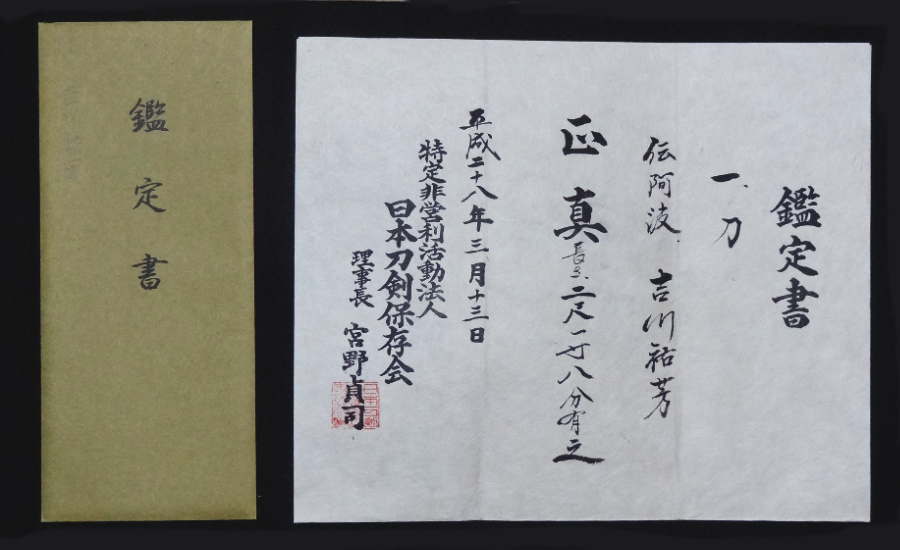 鑑定書
鑑定書
一、刀
伝阿波 吉川祐芳
正真 長さ二尺一寸八分有之
平成二十八年三月十三日
特定非営利活動法人
日本刀剣保存会
理事長 宮野貞司